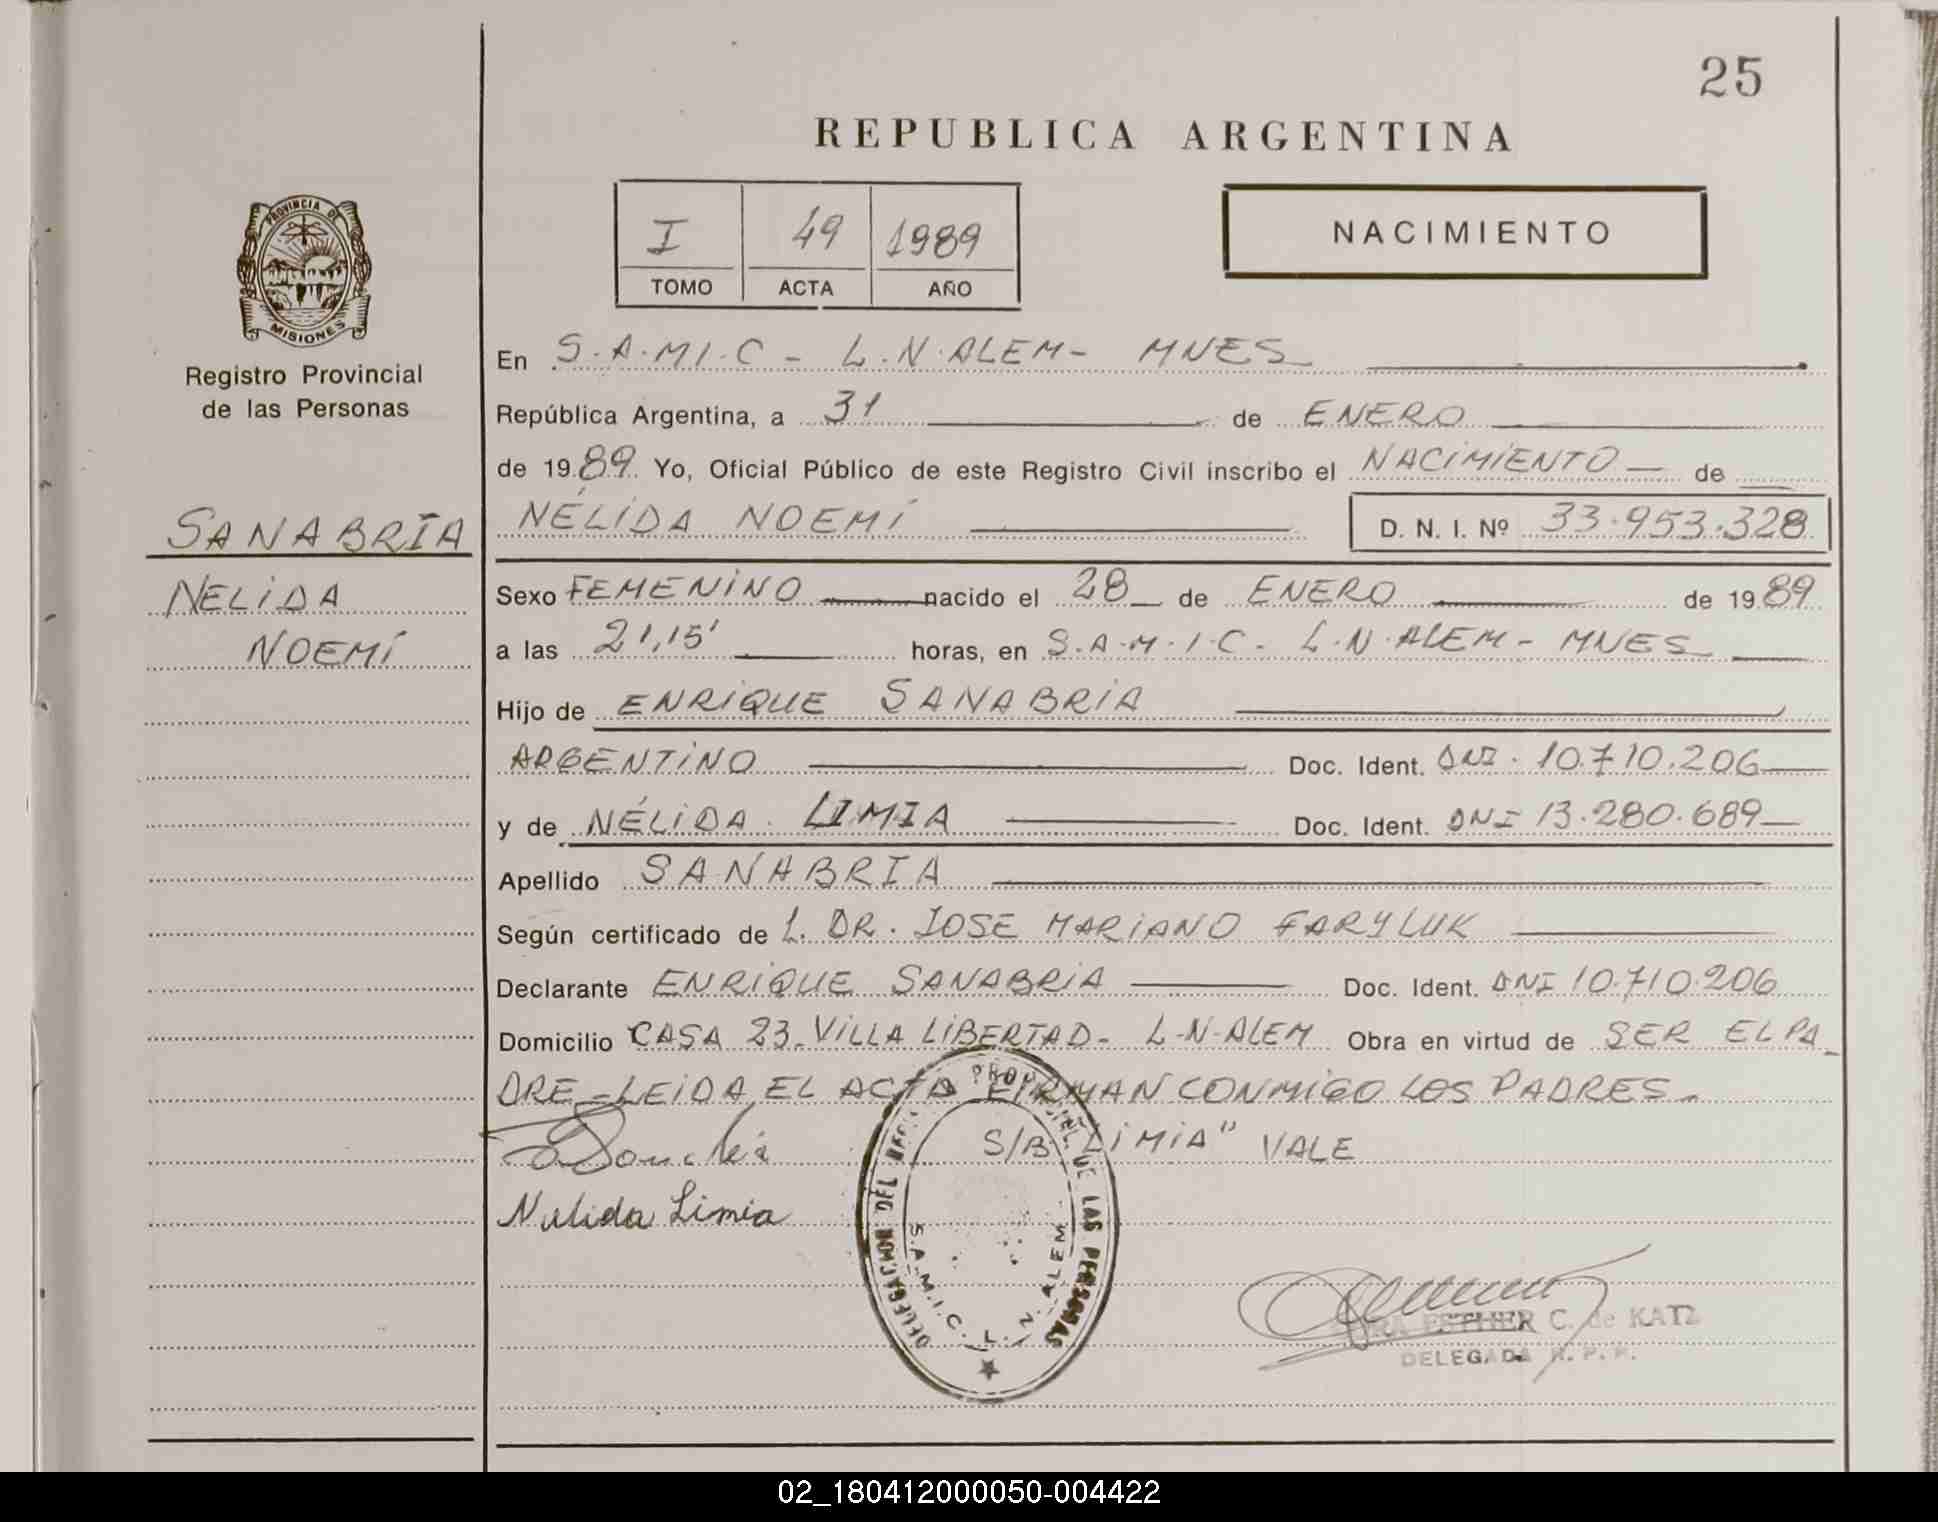 25
REPUBLICA ARGENTINA
I 49 1989
TOMO ACTA AÑO
NACIMIENTO
PROVINCIA DE
MISIONES
Registro Provincial
de las Personas
SANABRIA
NELIDA
NOEMÍ
En S.A.M.I.C - L.N.ALEM - MNES
República Argentina, a 31 de ENERO
de 1989. Yo, Oficial Público de este Registro Civil inscribo el NACIMIENTO de
NÉLIDA NOEMÍ D. N. I. Nº 33.953.328
Sexo FEMENINO nacido el 28 de ENERO de 1989
a las 21,15' horas, en S.A.M.I.C - L.N.ALEM - MNES
Hijo de ENRIQUE SANABRIA
ARGENTINO Doc. Ident. DNI. 10.710.206
y de NÉLIDA LIMIA Doc. Ident. DNI 13.280.689
Apellido SANABRIA
Según certificado de L. DR. JOSE MARIANO FARYLUK
Declarante ENRIQUE SANABRIA Doc. Ident. DNI 10.710.206
Domicilio CASA 23 - VILLA LIBERTAD - L-N-ALEM Obra en virtud de SER EL PA-
DRE = LEIDA EL ACTA FIRMAN CONMIGO LOS PADRES -
S/B "LIMIA" VALE
Nelida Limia
DELEGACION DEL DE LAS PERSONAS
S.A.M.I.C. L. N. ALEM
DRA ESTHER C. de KATZ
DELEGADA R. P. P.
02_180412000050-004422